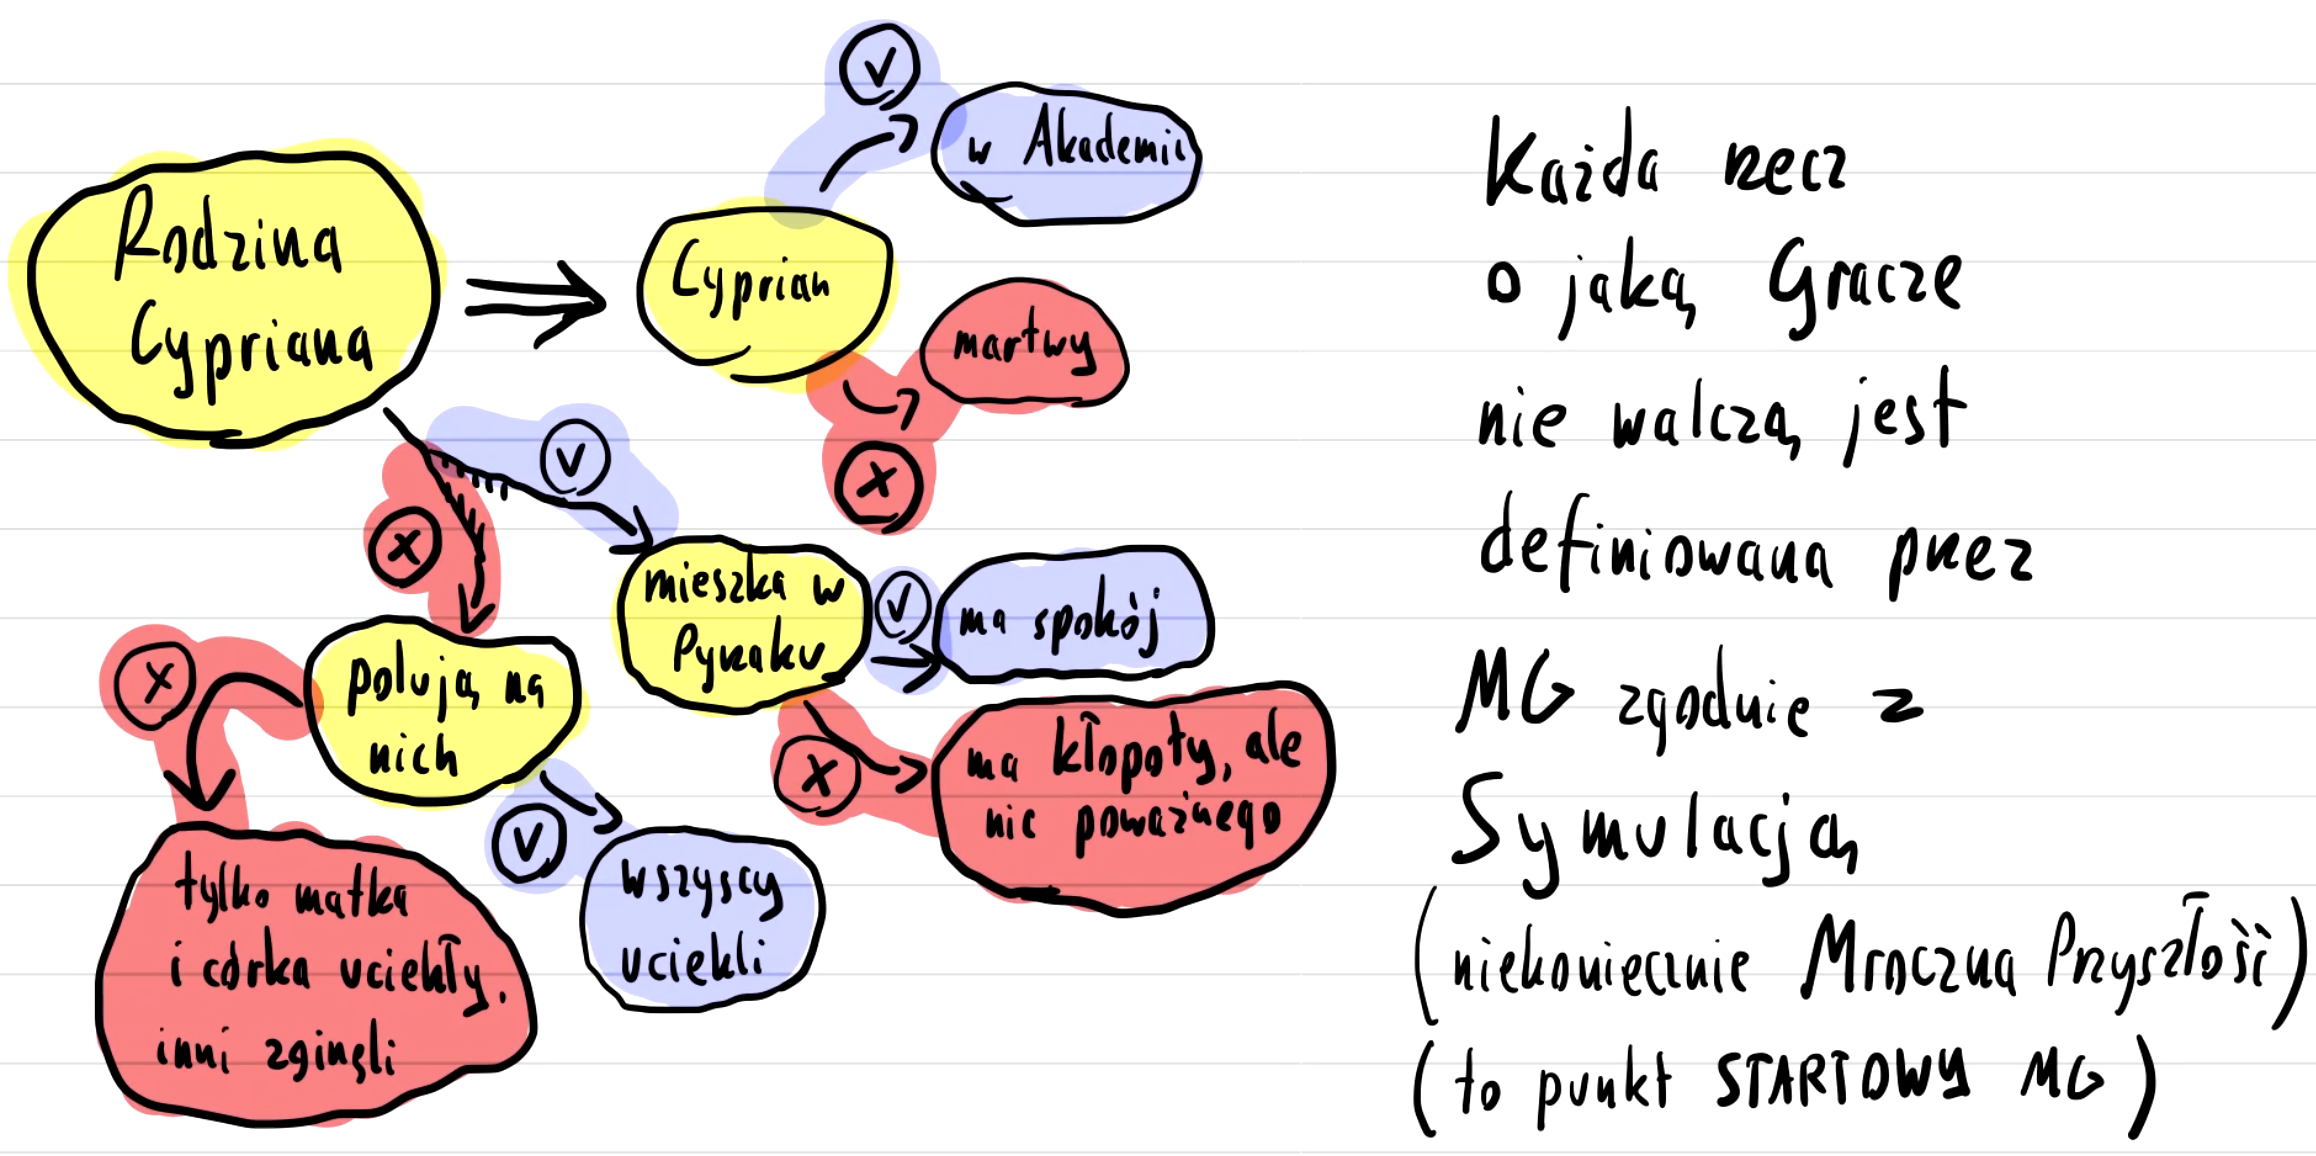 Rodzina
Cypriana
Cyprian
V
w Akademii
martwy
X
V
X
mieszka w
Pyrzaku
V
ma spokój
X
ma kłopoty, ale
nic poważnego
polują na
nich
X
tylko matka
i córka uciekły,
inni zginęli
V
wszyscy
uciekli
Każda rzecz
o jaką Gracze
nie walczą jest
definiowana przez
MG zgodnie z
Symulacją
(niekoniecznie Mroczna Przyszłość)
(to punkt STARTOWY MG)